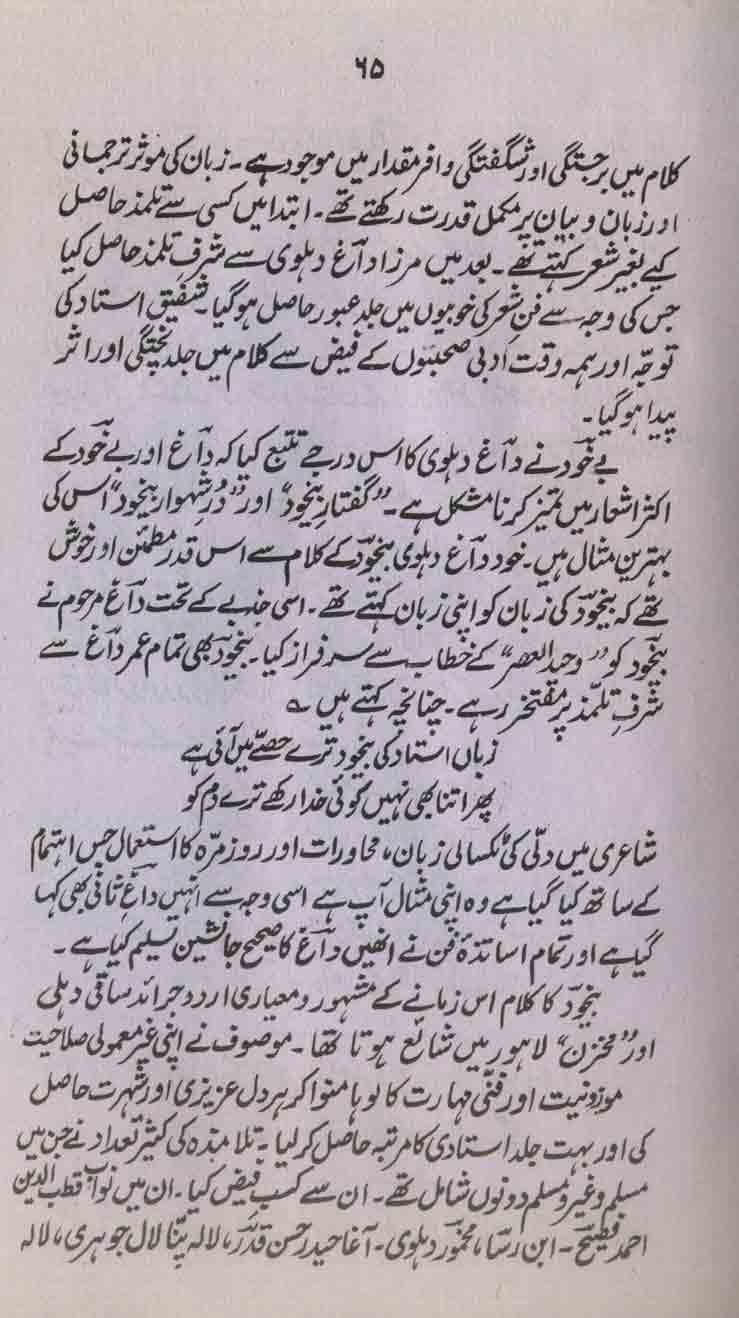 ۶۵
کلام میں برجستگی اور شگفتگی وافر مقدار میں موجود ہے۔ زبان کی موثر ترجمانی
اور زبان و بیان پر مکمل قدرت رکھتے تھے۔ ابتدا میں کسی سے تلمذ حاصل
کیے بغیر شعر کہتے تھے۔ بعد میں مرزا داغؔ دہلوی سے شرفِ تلمذ حاصل کیا
جس کی وجہ سے فنِ شعر کی خوبیوں میں جلد عبور حاصل ہوگیا۔ شفیق استاد کی
توجّہ اور ہمہ وقت ادبی صحبتوں کے فیض سے کلام میں جلد پختگی اور اثر
پیدا ہوگیا۔
بے خودؔ نے داغؔ دہلوی کا اس درجے تتبع کیا کہ داغؔ اور بے خودؔ کے
اکثر اشعار میں تمیز کرنا مشکل ہے۔ ”گفتارِ بیخود“ اور ”دُرِ شہوار بیخود“ اس کی
بہترین مثال ہیں۔ خود داغؔ دہلوی بیخودؔ کے کلام سے اس قدر مطمئن اور خوش
تھے کہ بیخودؔ کی زبان کو اپنی زبان کہتے تھے۔ اسی جذبے کے تحت داغؔ مرحوم نے
بیخودؔ کو ”وحید العصر“ کے خطاب سے سرفراز کیا۔ بیخودؔ بھی تمام عمر داغؔ سے
شرفِ تلمّذ پر مفتخر رہے۔ چنانچہ کہتے ہیں ؎
زباں استاد کی بیخود ترے حصّے میں آئی ہے
پھر اتنا بھی نہیں کوئی خدا رکھے ترے دم کو
شاعری میں دلّی کی ٹکسالی زبان، محاورات اور روز مرّہ کا استعمال جس اہتمام
کے ساتھ کیا گیا ہے وہ اپنی مثال آپ ہے اسی وجہ سے انہیں داغِ ثانی بھی کہا
گیا ہے اور تمام اساتذۂ فن نے انھیں داغؔ کا صحیح جانشین تسلیم کیا ہے۔
بیخودؔ کا کلام اس زمانے کے مشہور و معیاری اردو جرائد ساقی دہلی
اور ”مخزن“ لاہور میں شائع ہوتا تھا۔ موصوف نے اپنی غیر معمولی صلاحیت
موزونیت اور فنّی مہارت کا لوہا منوا کر ہر دل عزیزی اور شہرت حاصل
کی اور بہت جلد استادی کا مرتبہ حاصل کر لیا۔ تلامذہ کی کثیر تعداد نے جن میں
مسلم و غیر مسلم دونوں شامل تھے۔ ان سے کسبِ فیض کیا۔ ان میں نواب قطب الدین
احمد فصیحؔ۔ ابن رسا، مخمورؔ دہلوی۔ آغا حیدر حسن قدرؔ، لالہ پنّا لال جوہری، لالہ